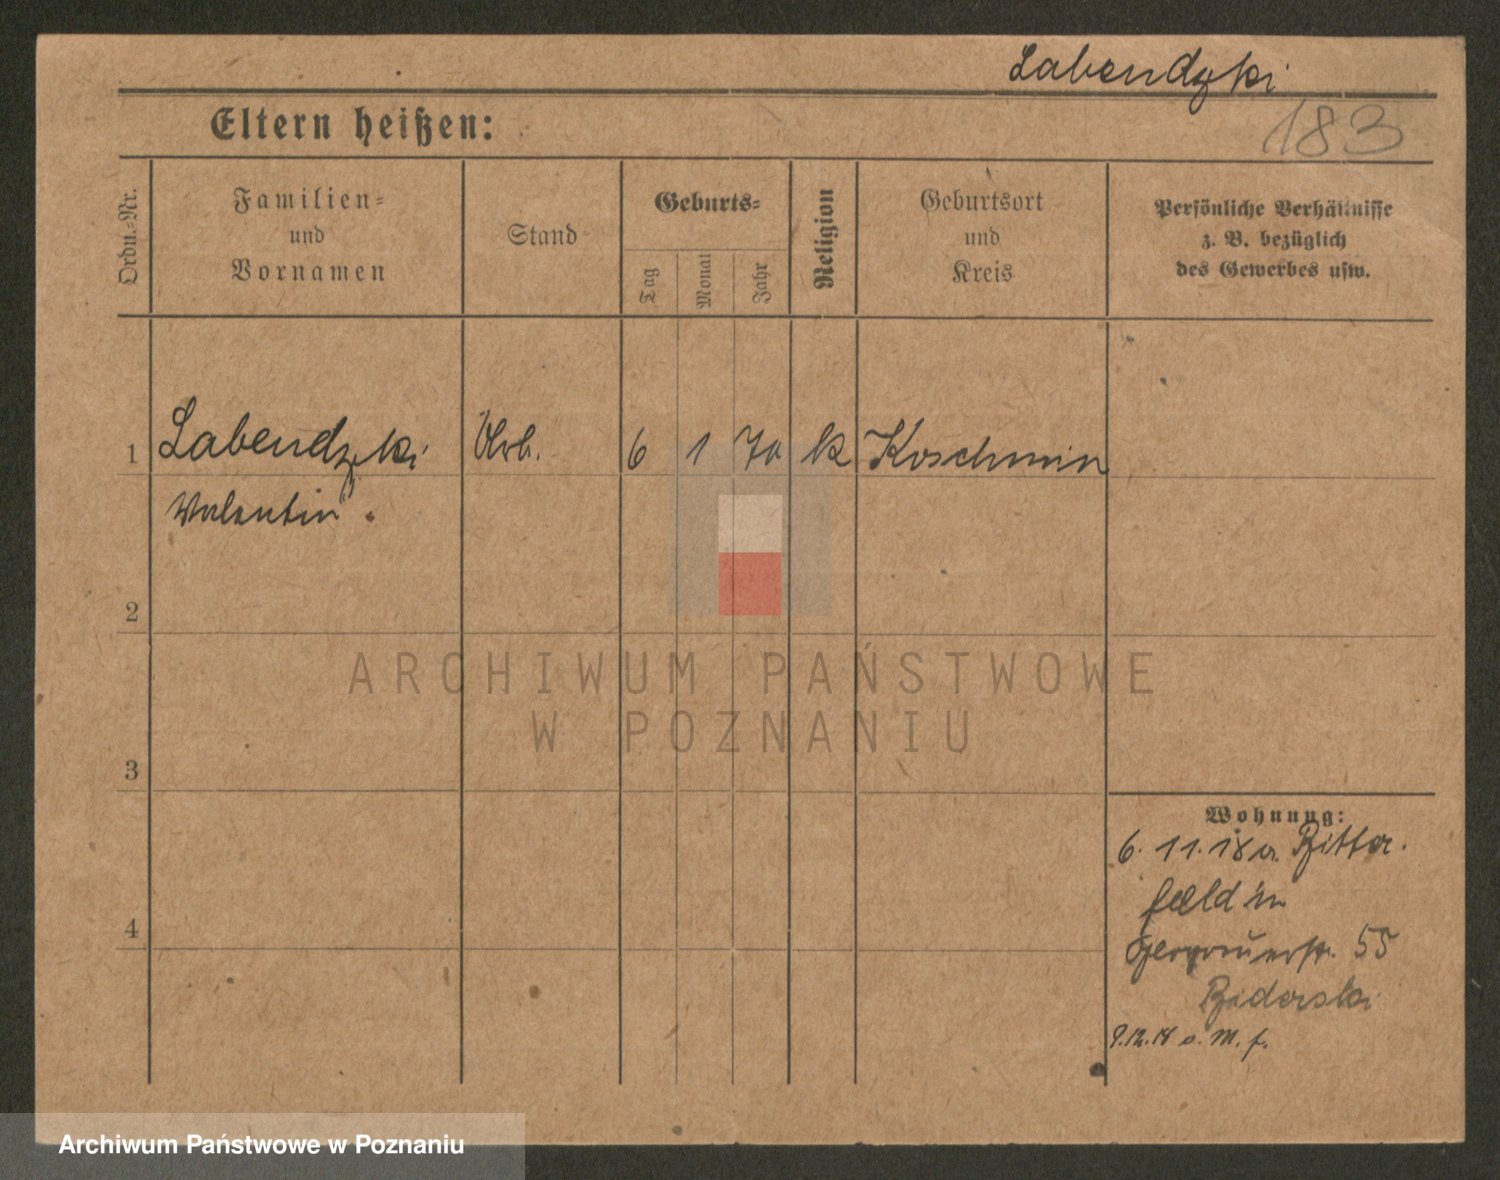 Labendzki
183
Eltern heißen:
Ordn.-Nr.
Familien-
und
Vornamen
Stand
Geburts-
Tag
Monat
Jahr
Religion
Geburtsort
und
Kreis
Persönliche Verhältnisse
z. B. bezüglich
des Gewerbes usw.
1 Labendzki Arb. 6 1 70 k Koschmin
Valentin
2
ARCHIWUM PAŃSTWOWE
W POZNANIU
3
Wohnung:
6. 11. 18 Bitter-
feld in
55
4
9.12.18 v. M. f.
Archiwum Państwowe w Poznaniu